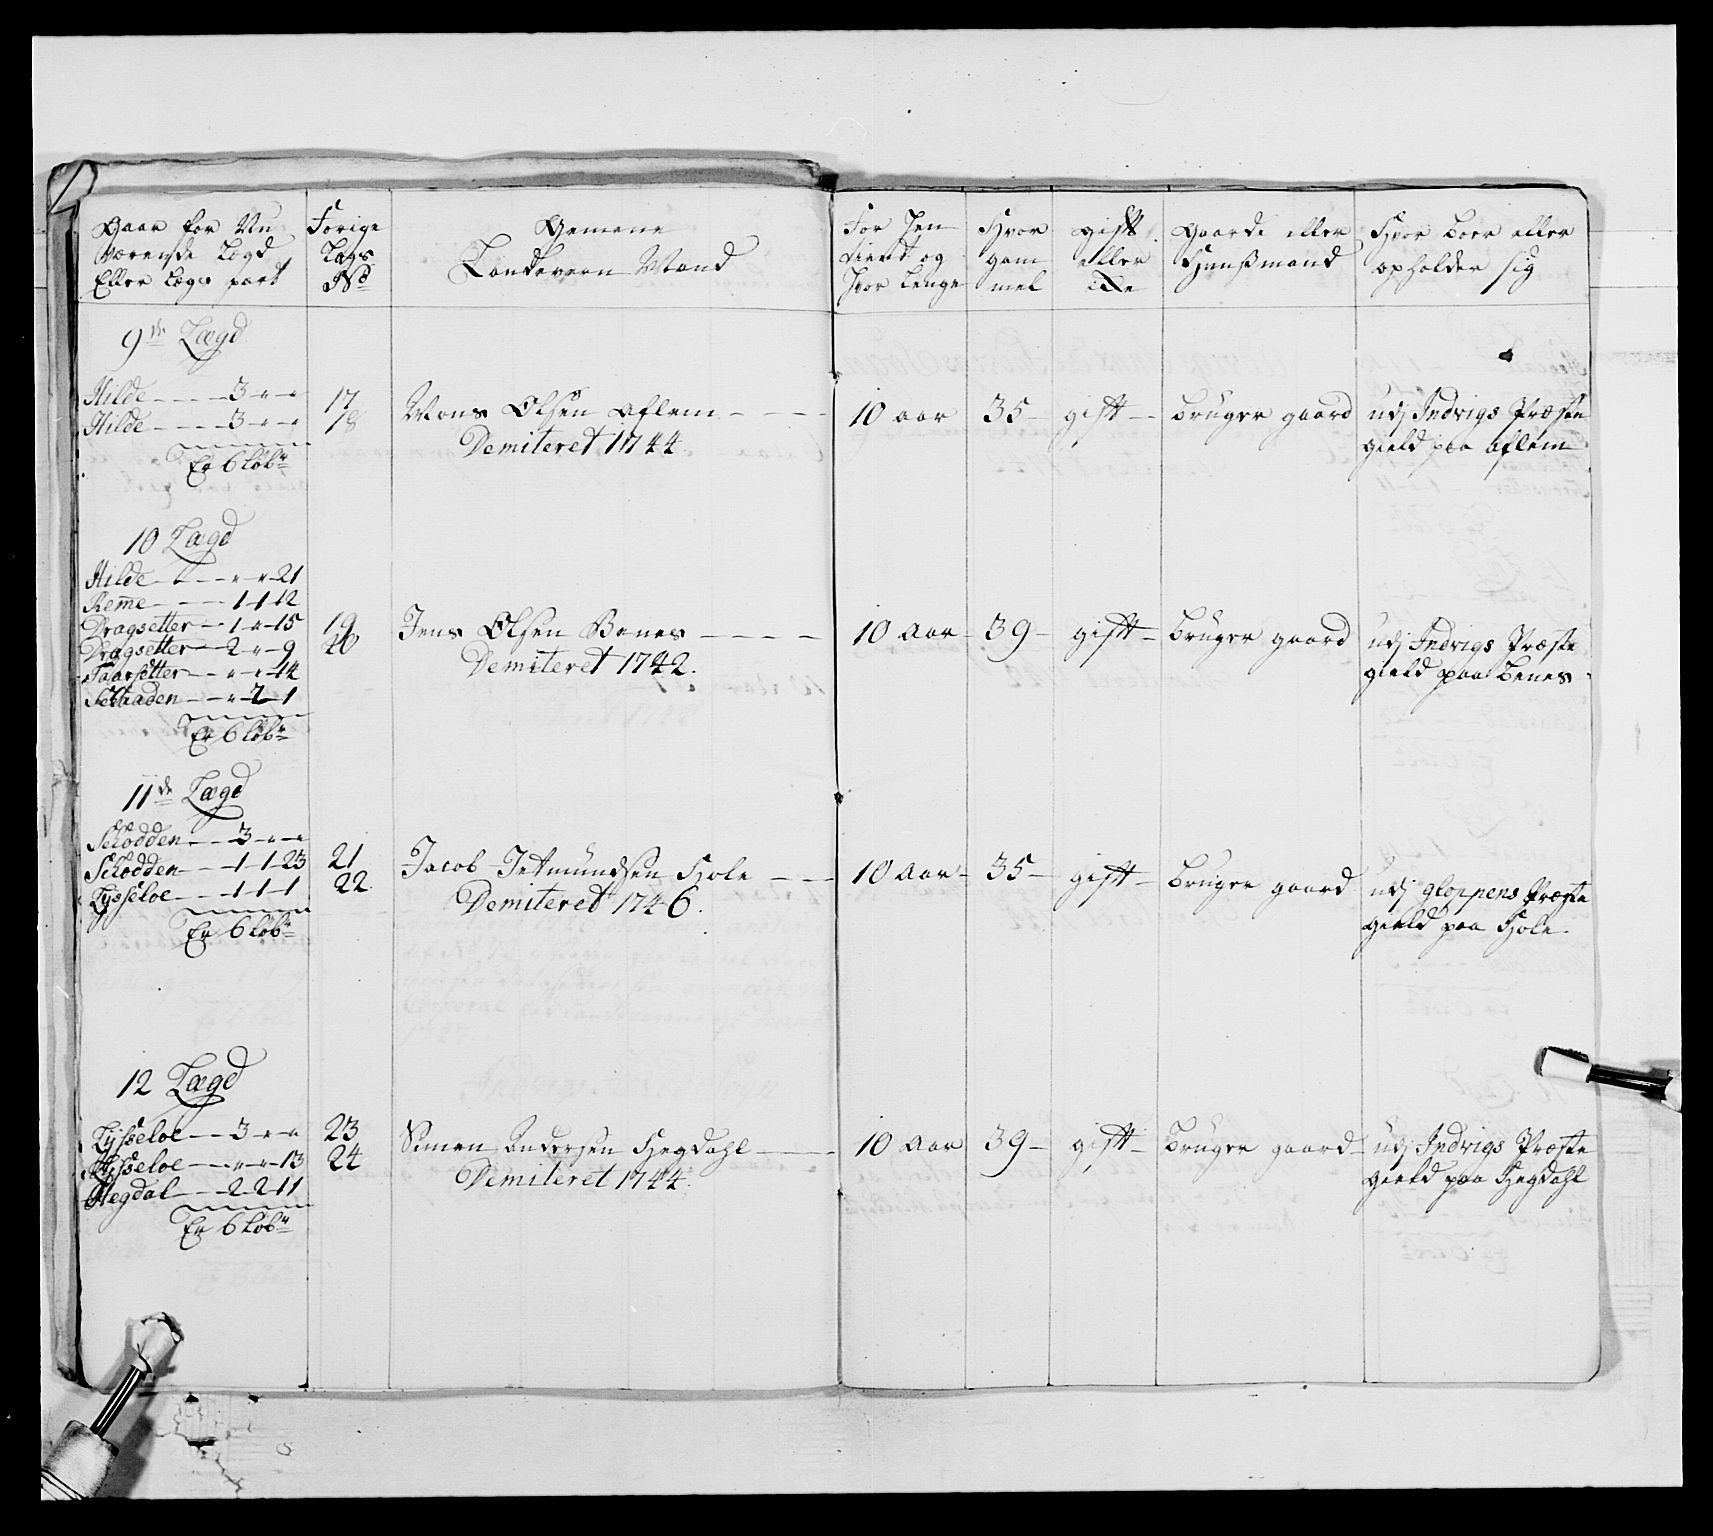 Gaar for Nu
værende Legd
Eller Legs part
Forige
Lægs
No
Gemene
Landevern Mand
For Jen
tient og
Hvor Lenge
Hvor
gam
mel
gift
eller
Ele
Gaarde eller
Huusmand
Hvor boer eller
opholder sig
9de Lægd
Hilde - - - - 3 - " - "
Hilde - - - - 3 - " - "
Er 6 Løb
17
18
Mons Olsen Aflem - - - -
Demiteret 1744.
10 aar
35 -
gift -
bruger gaard
udj Indvigs Præste
gield paa aflem
10 Lægd
Hilde - - - " - " - 21
Reme - - - 1 - 1 - 12
Dragsetter - - 1 - " - 15
Dragsetter - 2 - " - 9
Taarsetter - - " - " - 14
Schaaden - - " - 2 - 1
Er 6 Løb
19
20
Jens Olsen Benes - - - -
Demiteret 1742.
10 Aar -
39 -
gift -
Bruger gaard
udj Indvigs Præste
gield paa Benes
11de Lægd
Schodden - - 3 - " - "
Schodden - - 1 - 1 - 23
Tysseloe - - 1 - 1 - 1
Er 6 Løb
21
22
Jacob Jetmundsen Hole - - -
Demiteret 1746.
10 Aar -
35 -
gift -
Bruger gaard
udj gloppens Præste
gield paa Hole.
12 Lægd
Tysseloe - - 3 - " - "
Tysseloe - - " - " - 13
Hegdal - - 2 - 2 - 11
Er 6 Løb
23
24
Simen Andersen Hegdahl - - -
Demiteret 1744.
10 Aar
39 -
gift -
Bruger gaard -
udj Indvigs Præste
gield paa Hegdahl